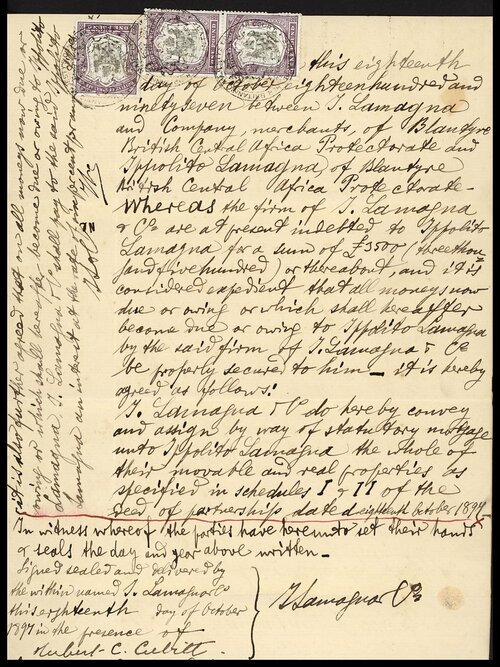 this eighteenth
day of October eighteenhundred and
ninety seven between I. Lamagna
and Company, merchants, of Blantyre
British Central Africa Protectorate and
Ippolito Lamagna of Blantyre
British Central Africa Protectorate-
Whereas the firm of I. Lamagna
& Co are at present indebted to Ippolito
Lamagna for a sum of £3500 (threethou-
sandfivehundred) or thereabout, and it is
considered expedient that all moneys now
due or owing or which shall hereafter
become due or owing to Ippolito Lamagna
by the said firm of I. Lamagna & Co
be properly secured to him - it is hereby
agreed as follows:
I. Lamagna & Co do hereby convey
and assign by way of statutory mortgage
unto Ippolito Lamagna the whole of
their movable and real properties as
specified in schedules I & II of the
deed of partnership dated eighteenth October 1897
In witness whereof the parties have hereunto set their hands
& seals the day and year above written -
Signed sealed and delivered by
the within named I. Lamagna & Co
this eighteenth day of October
1897 in the presence of
Hubert C. Cubitt
I Lamagna & Co
it is also further agreed that on all moneys now due or
owing or which shall hereafter become due or owing to Ippolito
Lamagna I. Lamagna & Co shall pay to the said Ippolito
Lamagna an interest at the rate of per cent per annum